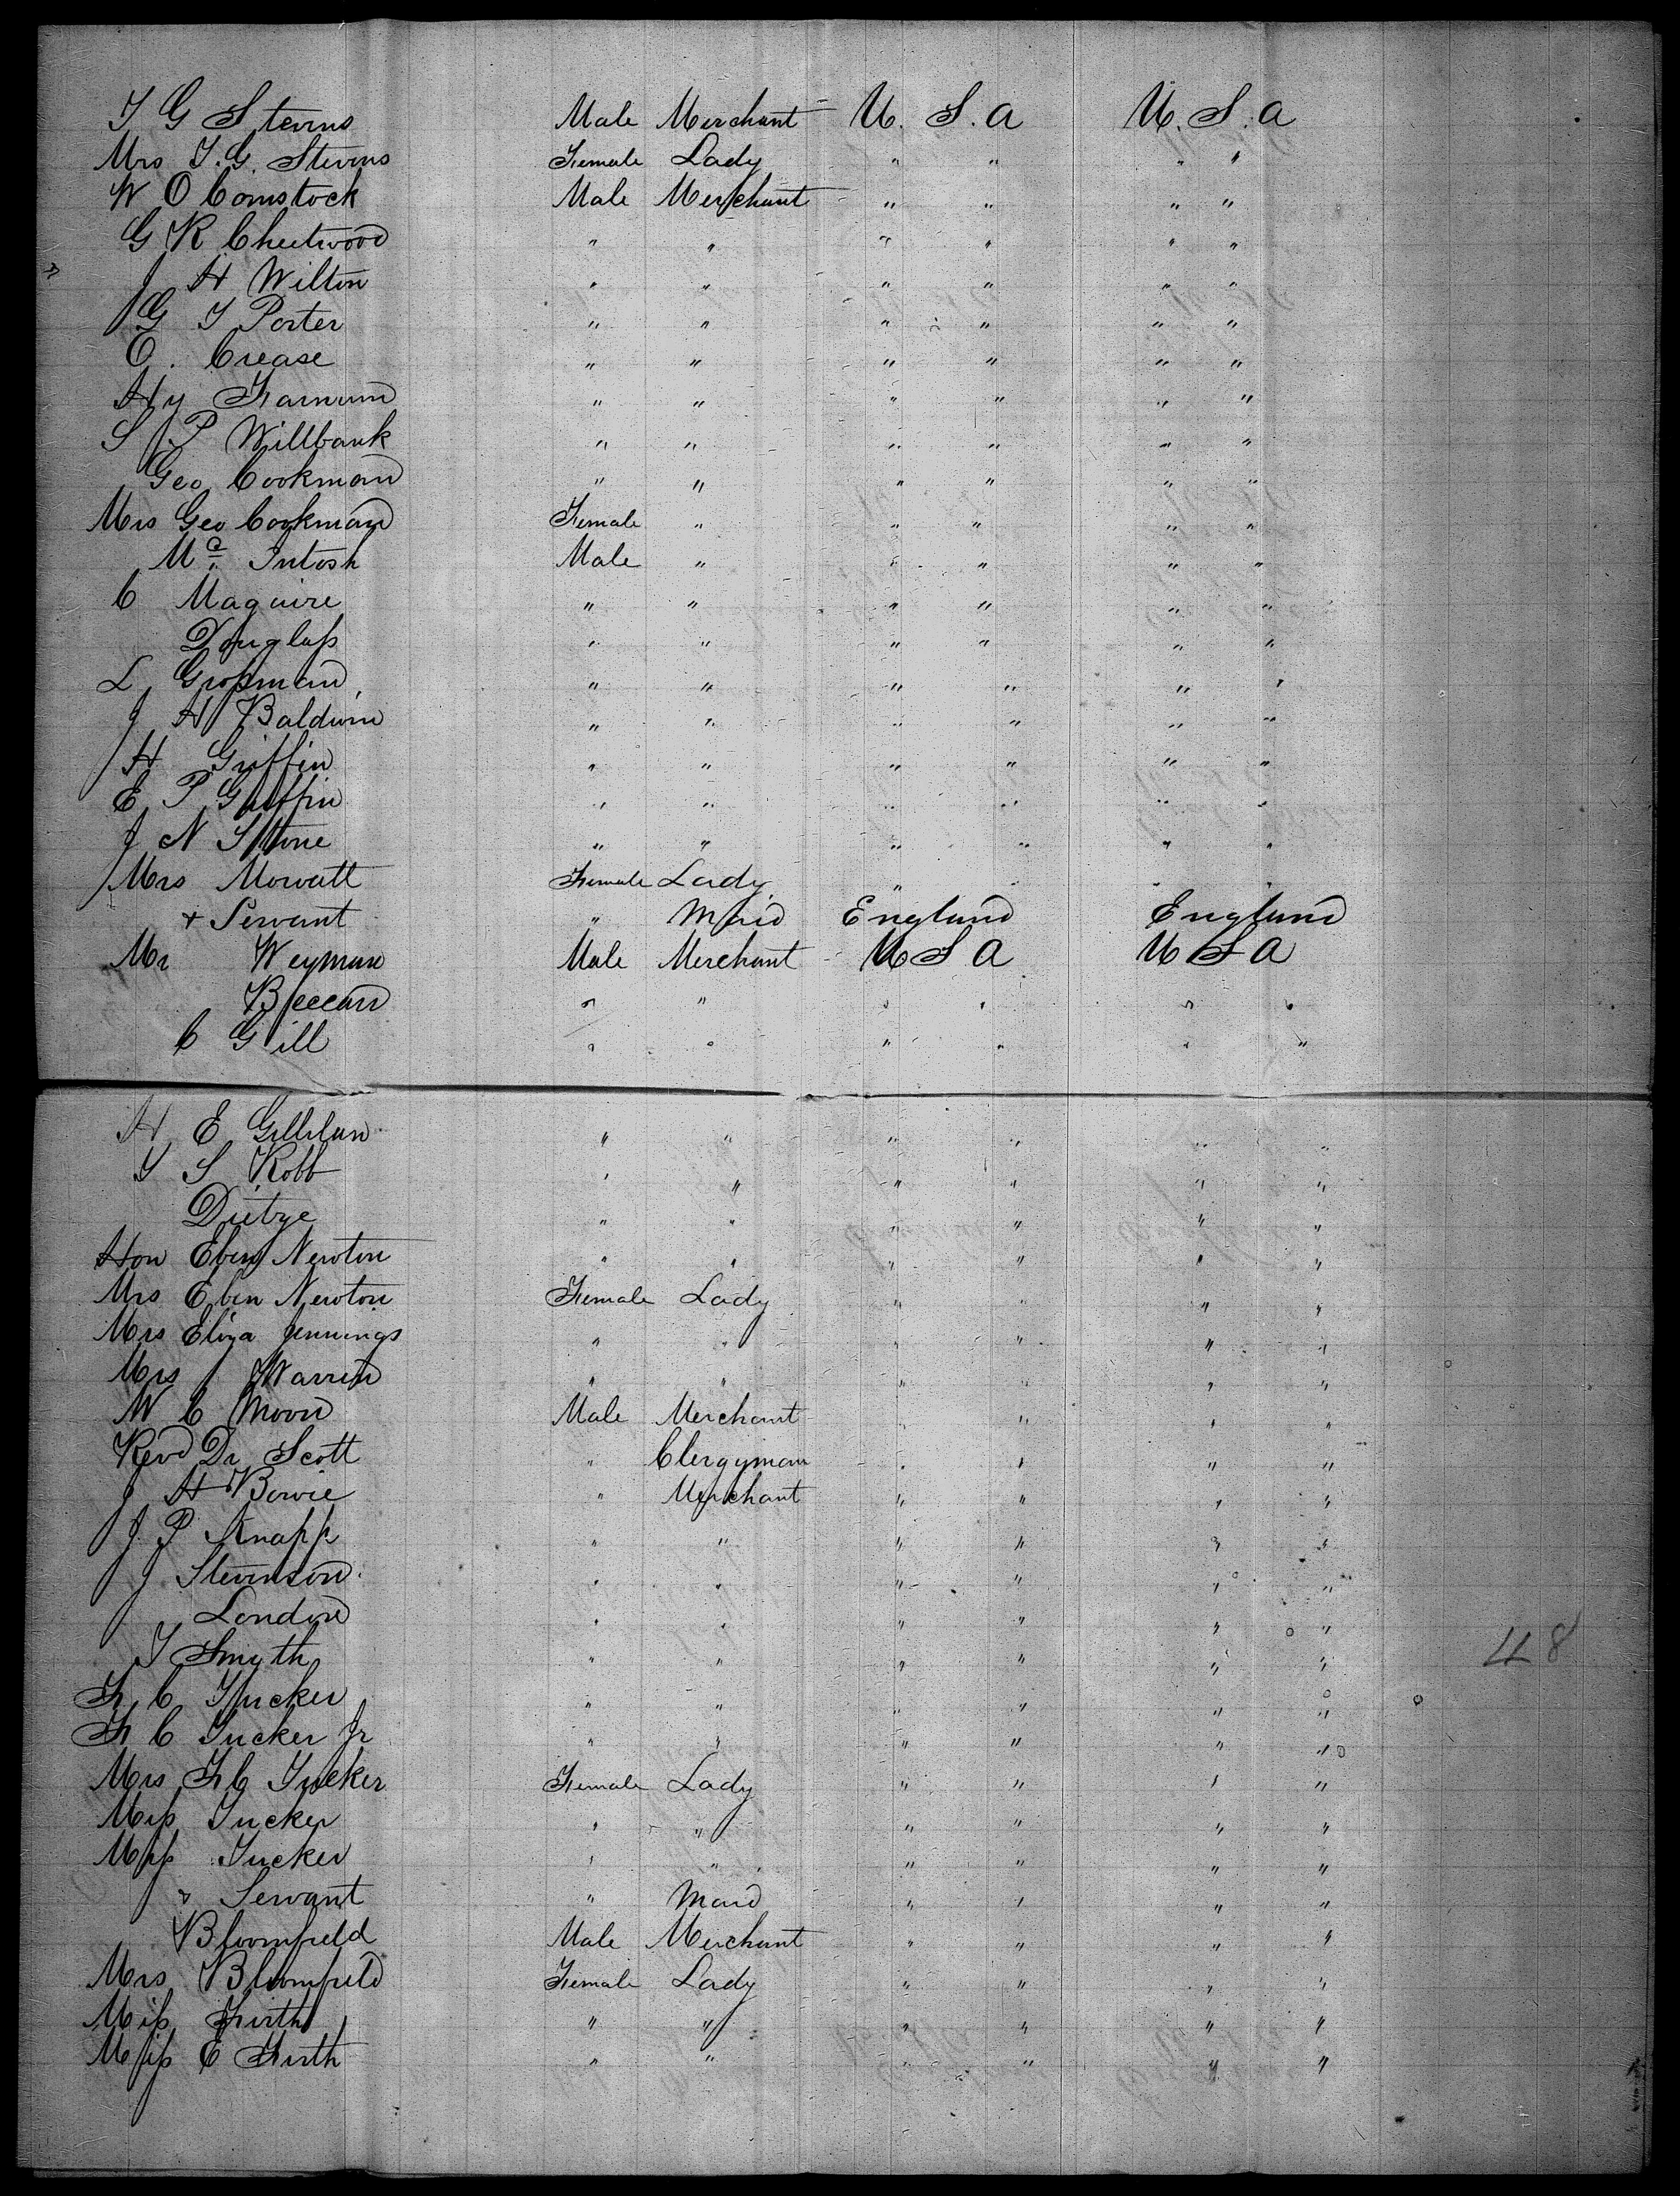 T G Stevens Male Merchant U. S. A U. S. A
Mrs T. G. Stevens Female Lady " " " "
W O Comstock Male Merchant " " " "
G K Chetwood " " " " " "
J H Wilton " " " " " "
G T Porter " " " " " "
O. Crease " " " " " "
Hy Farnum " " " " " "
S P Willbank " " " " " "
Geo Cookman " " " " " "
Mrs Geo Cookman Female " " " " "
Mc Intosh Male " " " " "
C Maguire " " " " " "
Douglass " " " " " "
L Grossman " " " " " "
J H Baldwin " " " " " "
H Griffin " " " " " "
E P Griffin " " " " " "
J N Stone " " " " " "
Mrs Mowatt Female Lady " " " "
+ Servant " Maid England England
Mr Weyman Male Merchant U S A U S A
" " " " " "
C Gill " " " " " "
H E Gillilan " " " " " "
T S Robb " " " " " "
Dietze " " " " " "
Hon Eben Newton " " " " " "
Mrs Eben Newton Female Lady " " " "
Mrs Eliza Jennings " " " " " "
Mrs J Warren " " " " " "
W C Moon Male Merchant " " " "
Revd Dr Scott " Clergyman " " " "
J H Bowie " Merchant " " " "
J. P Knapp " " " " " "
J Stevenson " " " " " "
London " " " " " "
T Smyth " " " " " "
F C Tucker " " " " " "
F C Tucker Jr " " " " " "
Mrs F C Tucker Female Lady " " " "
Miss Tucker " " " " " "
Miss Tucker " " " " " "
" Servant " Maid " " " "
Bloomfield Male Merchant " " " "
Mrs Bloomfield Female Lady " " " "
Miss Firth " " " " " "
Miss E Firth " " " " " "
48